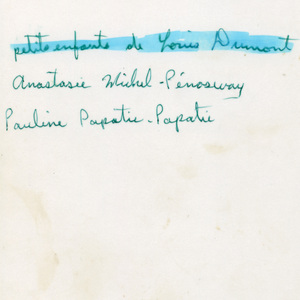 petits enfants de Louis Dumont
Anastasie Michel-Pénosway
Pauline Papatie-Papatie